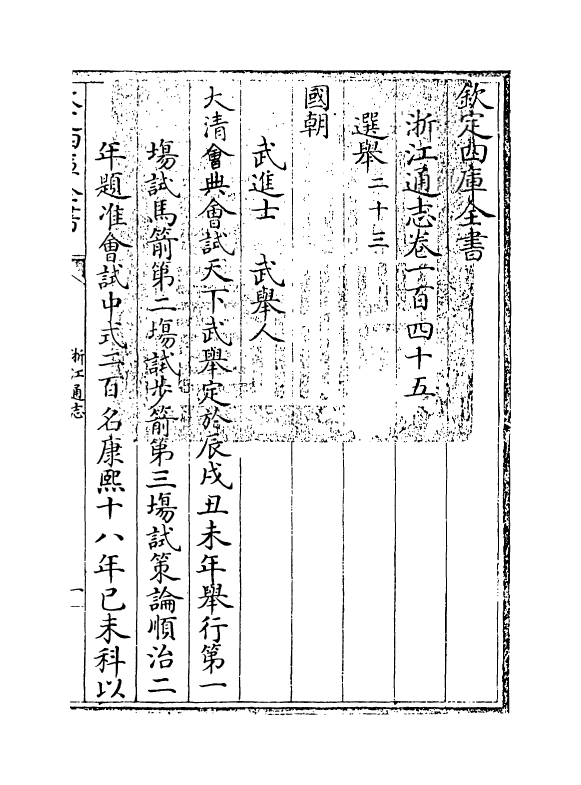 欽定四庫全書
浙江通志卷一百四十五
選舉二十三
國朝
武進士　武舉人
大清會典會試天下武舉定於辰戌丑未年舉行第一
場試馬箭第二場試步箭第三場試策論順治二
年題准會試中式二百名康熙十八年己未科以
浙江通志
一